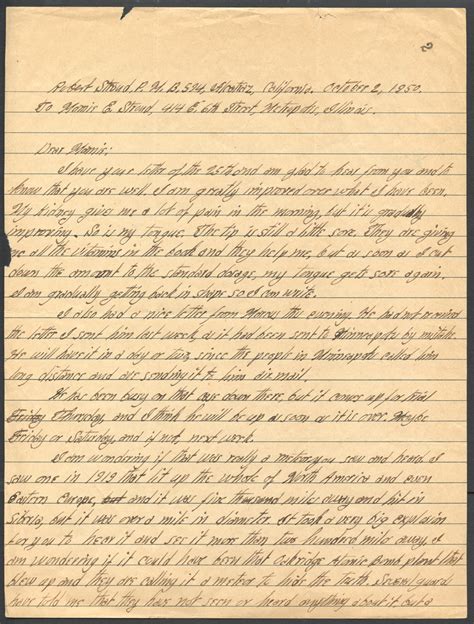 2
Robert Stroud, P. M. B, 594, Alcatraz, California. October 2, 1950.
To Mamie E. Stroud, 414 E. 6th Street, Metropolis, Illinois.
Dear Mamie:
I have your letter of the 25th and am glad to hear from you and to
know that you are well. I am greatly improved over what I have been.
My kidney give me a lot of pain in the morning, but it is gradually
improving. So is my tongue. The tip is still a little sore. They are giving
me all the vitamins in the book and they help me, but as soon as I cut
down the amount to the standard dosage, my tongue gets sore again.
I am gradually getting back in shape so I can write.
I also had a nice letter from Marcus this evening. He had not received
the letter I sent him last week, as it had been sent to Minneapolis by mistake.
He will have it in a day or two, since the people in Minneapolis called him
long distance and are sending it to him air mail.
He has been busy on that case down there, but it comes up for trial
Friday Thursday, and I think he will be up as soon as it is over. Maybe
Friday or Saturday and if not, next week.
I am wondering if that was really a meteor you saw and heard. I
saw one in 1919 that lit up the whole of North America and even
Eastern Europe, but and it was five thousand miles away and hit in
Siberia, but it was over a mile in diameter. It took a very big explosion
for you to hear it and see it more than two hundred miles away. I
am wondering if it could have been that Oakridge Atomic Bomb plant that
blew up and they are calling it a meteor to hide the truth. Several guards
have told me that they have not seen or heard anything about it, but a